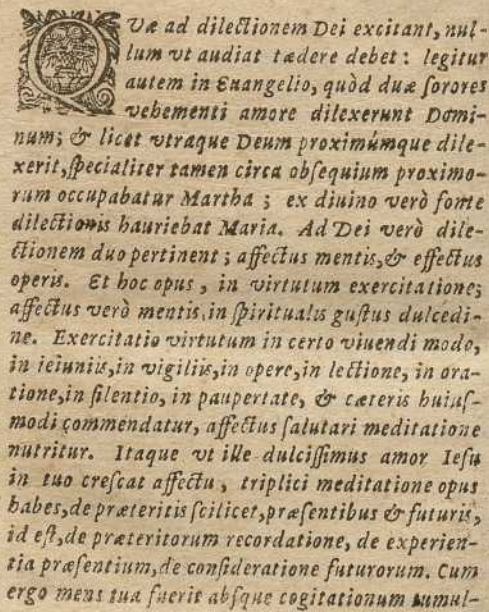 QVæ ad dilectionem Dei excitant, nul-
lum vt audiat tædere debet: legitur
autem in Euangelio, quòd duæ sorores
vehementi amore dilexerunt Domi-
num; & licet vtraque Deum proximúmque dile-
xerit, specialiter tamen circa obsequium proximo-
rum occupabatur Martha; ex diuino verò fonte
dilectionis hauriebat Maria. Ad Dei verò dile-
ctionem duo pertinent; affectus mentis, & effectus
operis. Et hoc opus, in virtutum exercitatione;
affectus verò mentis, in spiritualis gustus dulcedi-
ne. Exercitatio virtutum in certo viuendi modo,
in ieiuniis, in vigiliis, in opere, in lectione, in ora-
tione, in silentio, in paupertate, & cæteris huius-
modi commendatur, affectus salutari meditatione
nutritur. Itaque vt ille dulcissimus amor Iesu
in tuo crescat affectu, triplici meditatione opus
habes, de præteritis scilicet, præsentibus & futuris,
id est, de præteritorum recordatione, de experien-
tia præsentium, de consideratione futurorum. Cum
ergo mens tua fuerit absque cogitationum tumul-